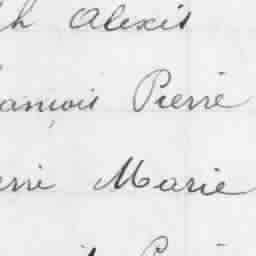 ph Alexis
ançois Pierre
erre Marie